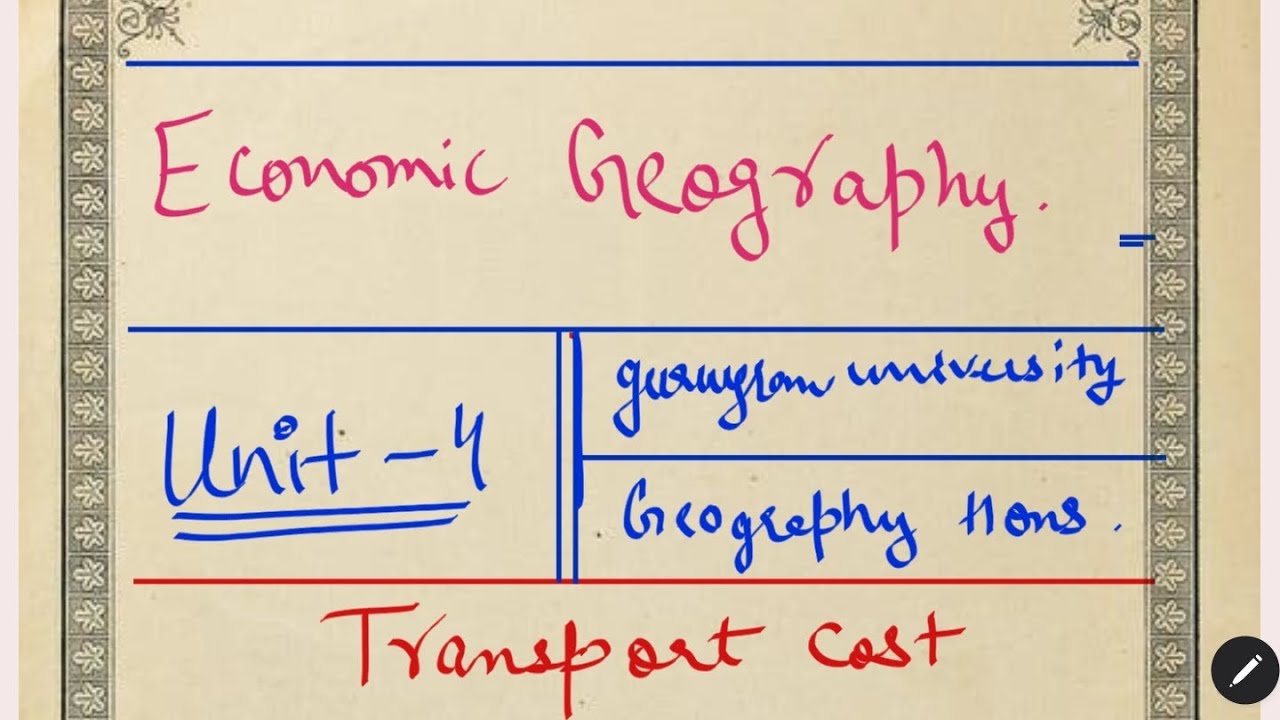 Economic Geography.
Unit-4
gurugram university
Geography Hons.
Transport cost